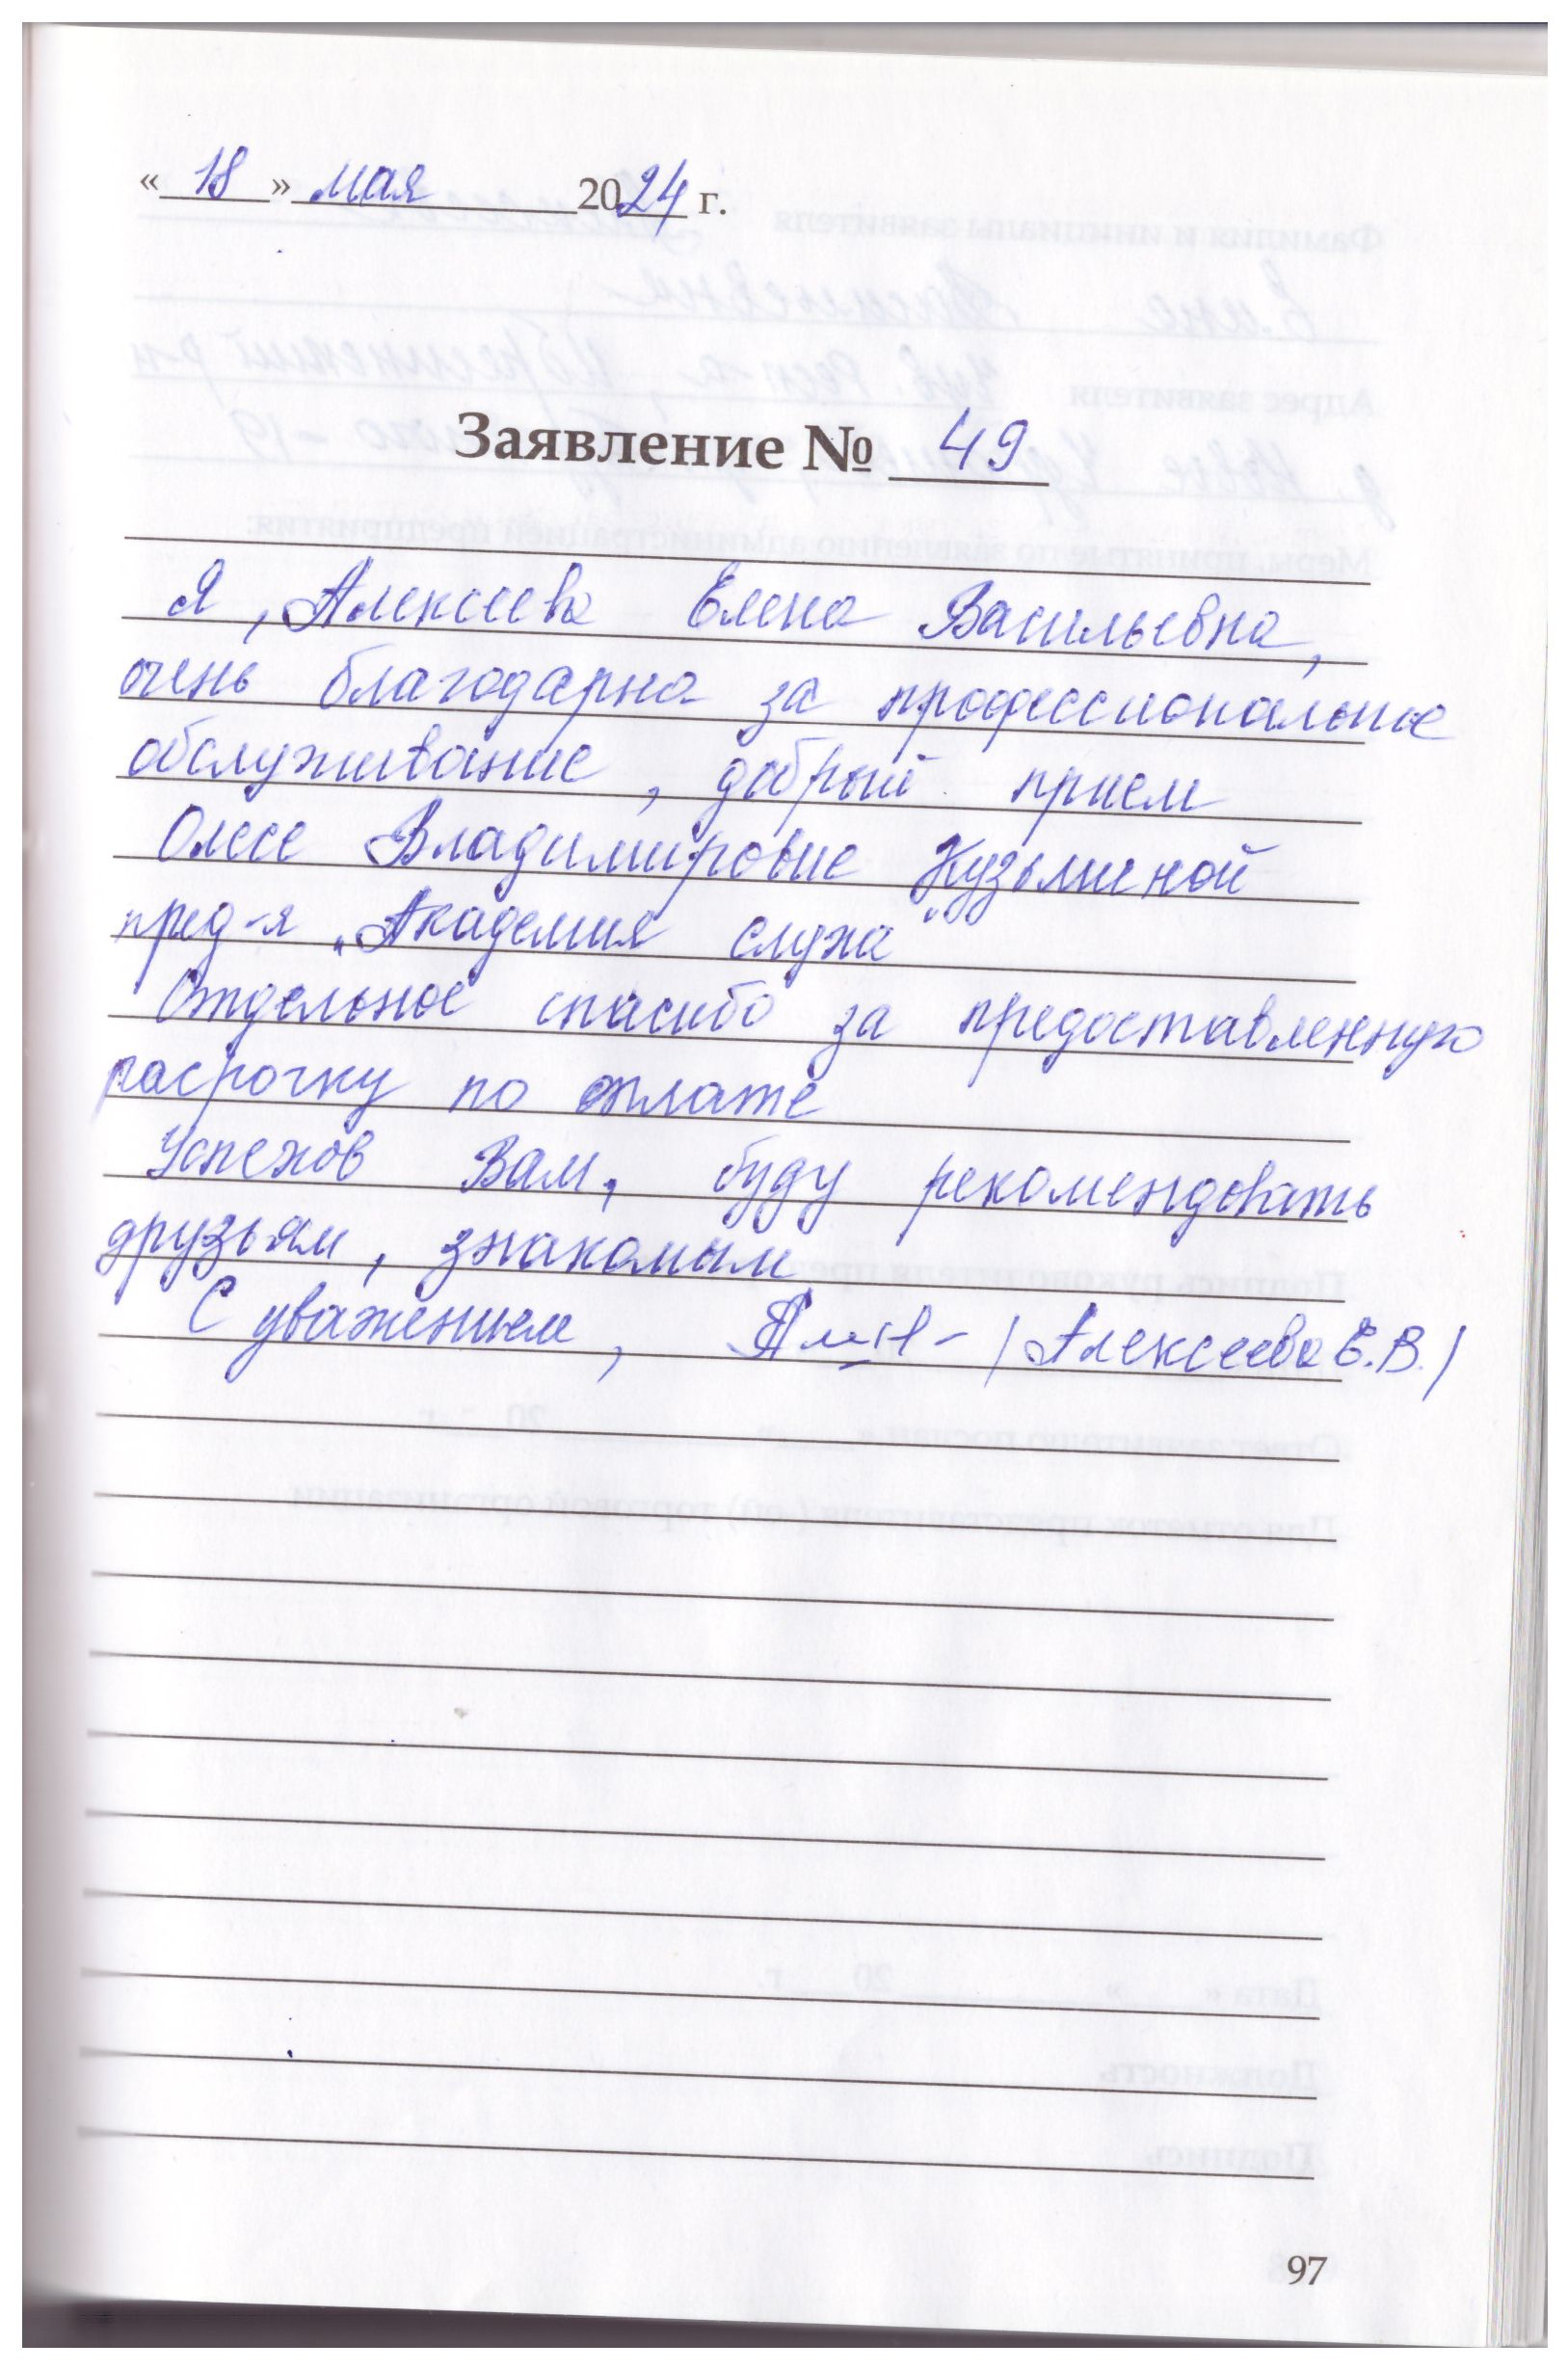 «18» мая 2024 г.
Заявление № 49
Я, Алексеева Елена Васильевна,
очень благодарна за профессиональное
обслуживание, добрый прием
Олесе Владимировне Кузьминой
пред-я „Академия слуха"
Отдельное спасибо за предоставленную
расрочку по оплате
Успехов Вам, буду рекомендовать
друзьям, знакомым
С уважением, /Алексеева Е.В./
97